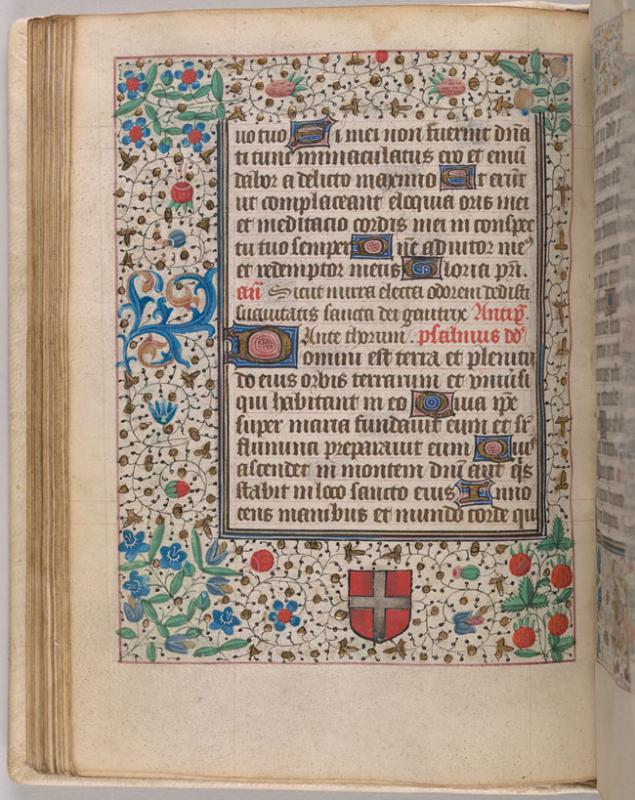 uo tuo Si mei non fuerint dn̄a
ti tunc immaculatus ero et emū
dabor a delicto maximo Et erūt
ut complaceant eloquia oris mei
et meditacio cordis mei in conspec
tu tuo semper Dn̄e adiutor meꝰ
et redemptor meus Gloria pr̄i.
an̄ Sicut mirra electa odorem dedisti
suauitatis sancta dei genitrix Antip̄.
Ante thorum. psalmus dd
Domini est terra et plenitu
do eius orbis terrarum et vniūsi
qui habitant in eo Quia ip̄e
super maria fundauit eum et sr̄
flumina preparauit eum Quis
ascendet in montem dn̄i aut q̄s
stabit in loco sancto eius Inno
cens manibus et mundo corde qui